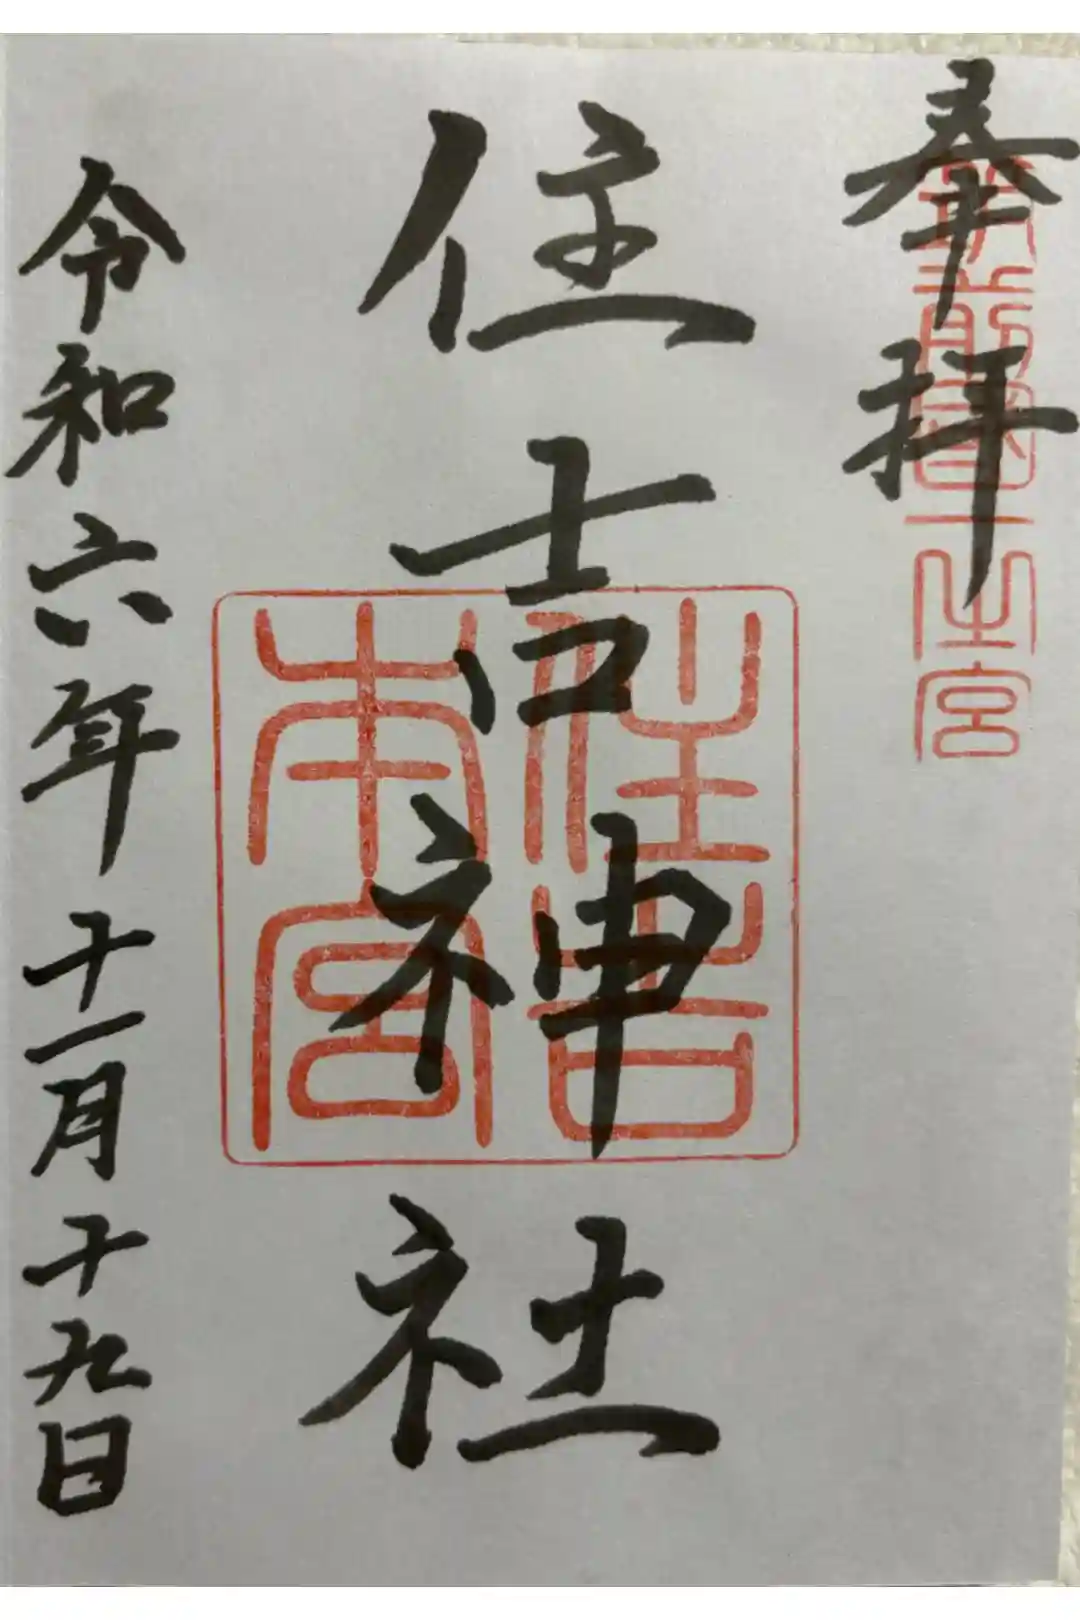 奉拝
筑前國一之宮
住吉神社
住吉本宮
令和六年十一月十九日